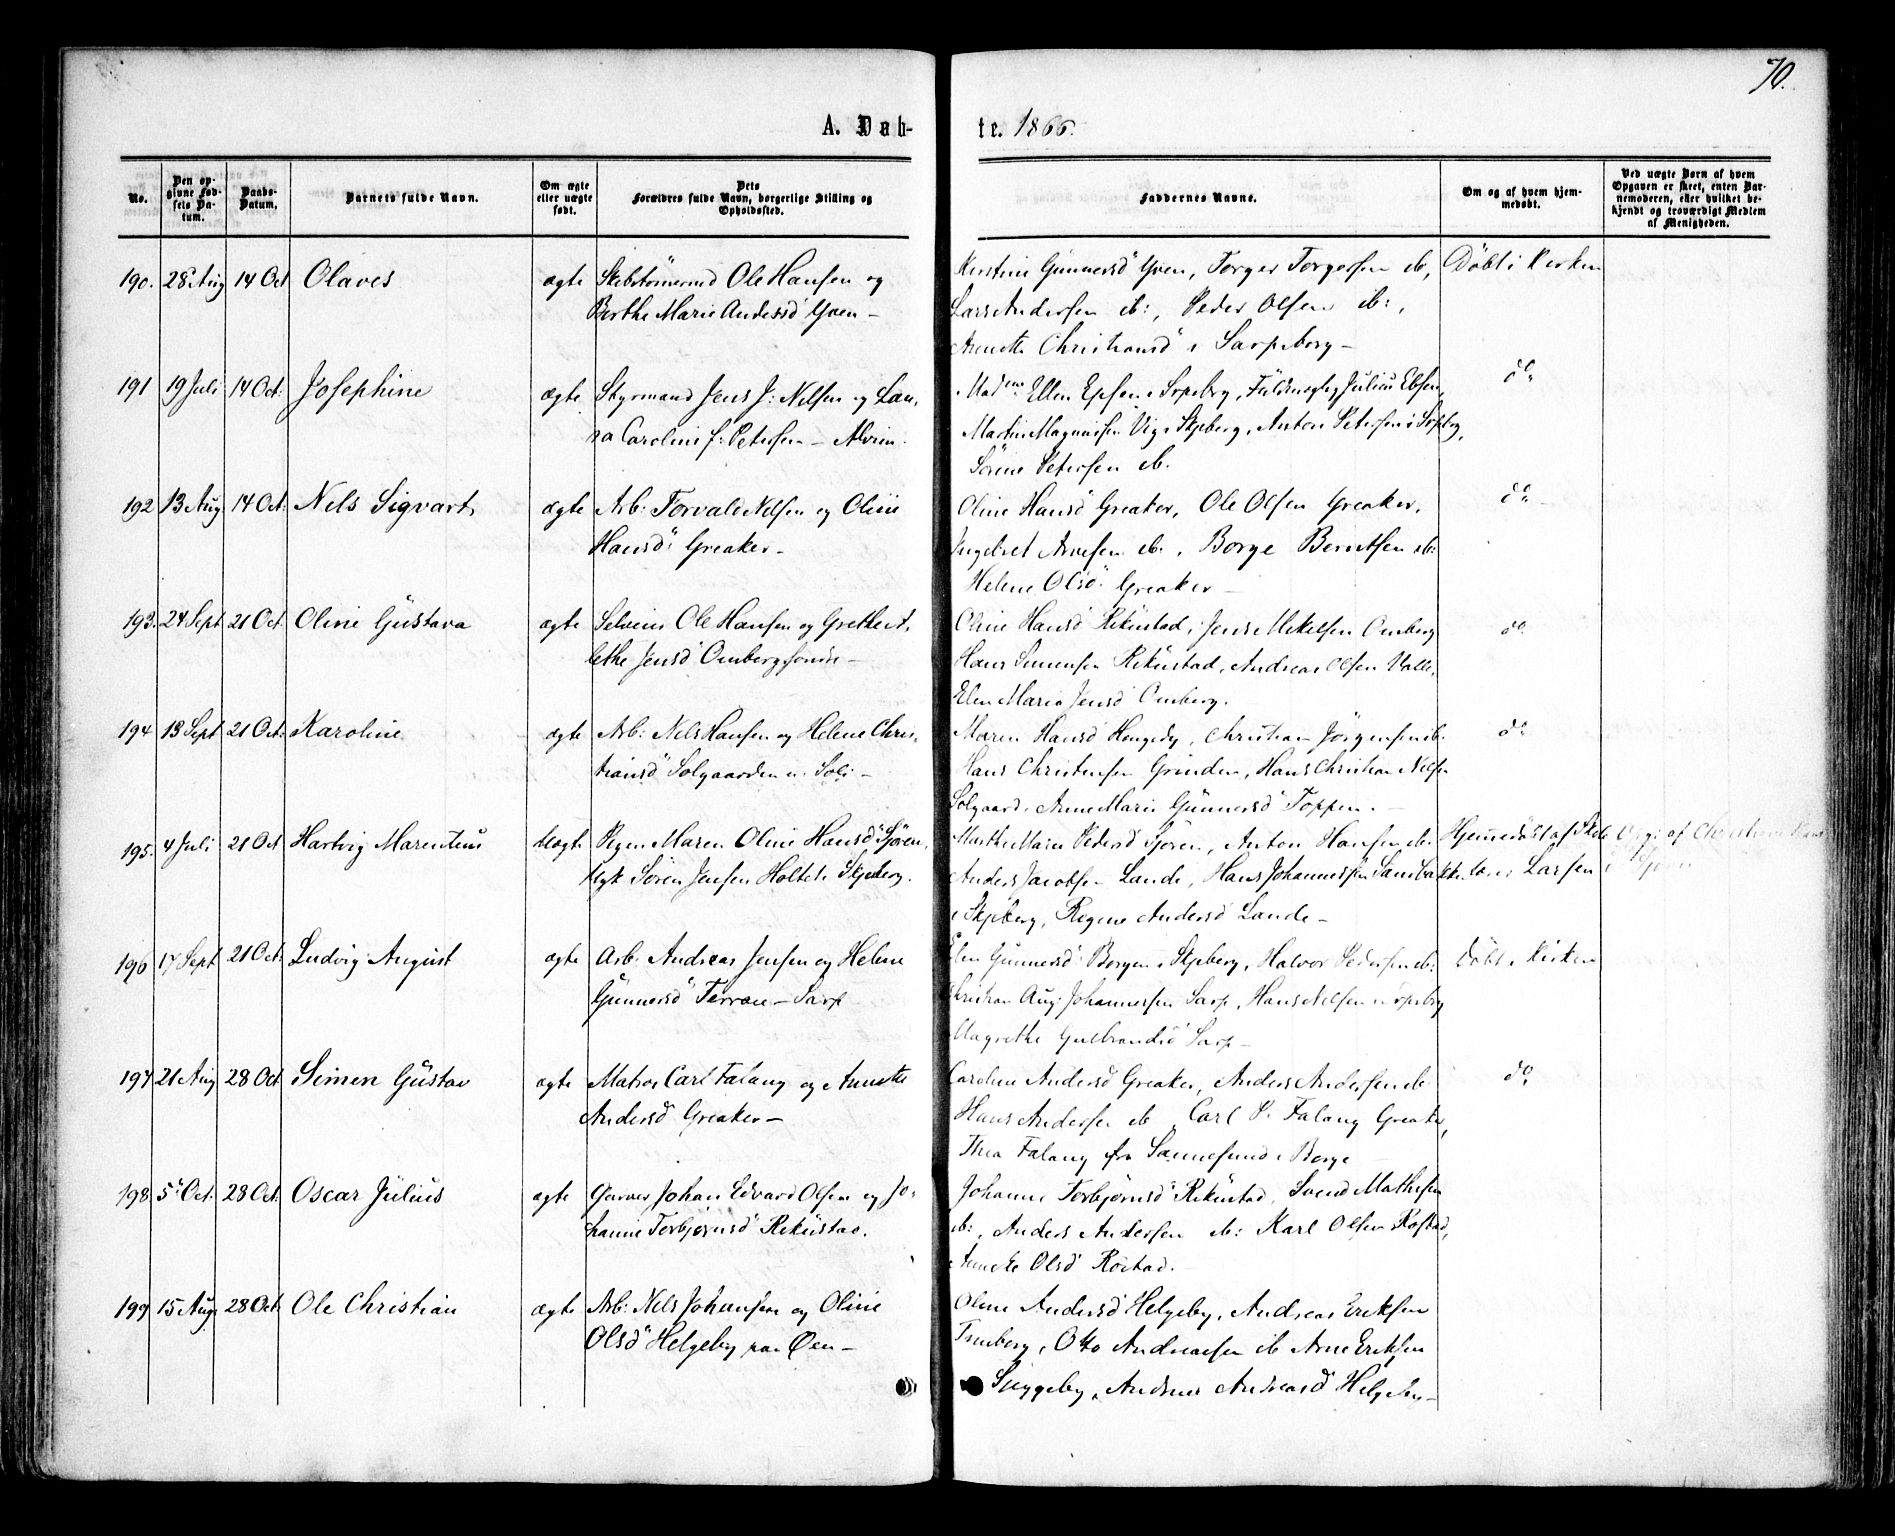 70.
A. Døb-
te. 1866.
No.
Den op-
givne Fød-
sels Da-
tum.
Daabs-
Datum.
Barnets fulde Navn.
Om ægte
eller uægte
født.
Dets
Forældres fulde Navn, borgerlige Stilling og
Opholdssted.
Faddernes Navne.
Om og af hvem hjem-
medøbt.
Ved uægte Børn af hvem
Opgaven er skeet, enten Bar-
nemoderen, eller hvilket be-
kjendt og troværdigt Medlem
af Menigheden.
190. 28 Aug 14 Oct Olaves ægte Skibstømmermd Ole Hansen og
Berthe Marie Andersd Yven –
Kirstine Gunnersd Yven, Torger Torgersen ib, Døbt i Kirken
Lars Andersen ib:, Peder Olsen ib:,
Annette Christiansd i Sarpsborg –
191 19 Juli 14 Oct: Josephine ægte Styrmand Jens J: Nilsen og Lau-
ra Caroline f: Petersen – Alvim.
Madme Ellen Epsen i Sarpsbrg, Fuldmægtig Julius Ebsen, do
Martin Magnussen Vig i Skjeberg, Anton Petersen i Srpsbrg,
Sørine Petersen ib.
192 13 Aug 14 Oct: Nels Sigvart ægte Arb: Torvald Nelsen og Oline
Hansd Greaker –
Oline Hansd Greaker, Ole Olsen Greaker, do
Ingebret Arnesen ib., Borge Berntsen ib:
Helene Olsd Greaker –
193. 24 Sept 21 Oct: Oline Gustava ægte Selveier Ole Hansen og Grethe
lethe Jensd Omberg
Oline Hansd Rikustad, Jens Mikelsen Omberg do
Hans Simensen Rikustad, Andreas Olsen Valle,
Elen Maria Jensd Omberg.
194 13 Sept 21 Oct: Karoline ægte Arb: Nels Hansen og Helene Chris-
tiansd Solgaarden u. Soli –
Maren Hansd Hougeby, Christian Jørgensen ib. do
Hans Christensen Grinden, Hans Christian Nelsen
Solgaard, Anne Marie Gunnersd Toppen. –
195. 4 Juli 21 Oct Hartvig Marentius Uægte Pigen Maren Oline Hansd Sjøren,
Ugk Søren Jensen Holtet i Skjeberg.
Marthe Marie Pedersd Sjøren, Anton Hansen ib. Hjemmedøbt af Skole Opgi: af Christian Hans
Anders Jacobsen Lande, Hans Johannesen Sandbakken lærer Larsen i Sjøren
i Skjeberg, Regine Andersd Lande –
196 17 Sept 21 Oct: Ludvig August ægte Arb. Andreas Jensen og Helene
Gunnersd Terran – Sarp
Elen Gunnersd Borgen i Skjeberg, Halvor Pedersen ib: Døbt i Kirken
Christian Aug: Johannessen Sarp, Hans Nelsen i Srpsbrg
Magrethe Gulbrandsd Sarp –
197 21 Aug 28 Oct Simen Gustav ægte Matros Carl Falang og Annette
Andersd Greaker –
Caroline Andersd Greaker, Anders Andersen ib do
Hans Andersen ib Carl P. Falang Greaker,
Thea Falang fra Sannesund i Borge
198. 5t Oct. 28 Oct. Oscar Julius ægte Garver Johan Edvard Olsen og Jo-
hanne Torbjørnsd Rikustad.
Johanne Torbjørnsd Rikustad, Svend Mathisen
ib:, Anders Andersen ib: Karl Olsen Rostad,
Annete Olsd Rostad. –
199 15 Aug 28 Oct. Ole Christian ægte Arb: Nels Johansen og Oline
Olsd Helgeby paa Øen –
Oline Andersd Helgeby, Andreas Eriksen
Tuneberg, Otto Andreasen ib Arne Eriksen
Suggeby, Andrine Andreasd Helgeby –